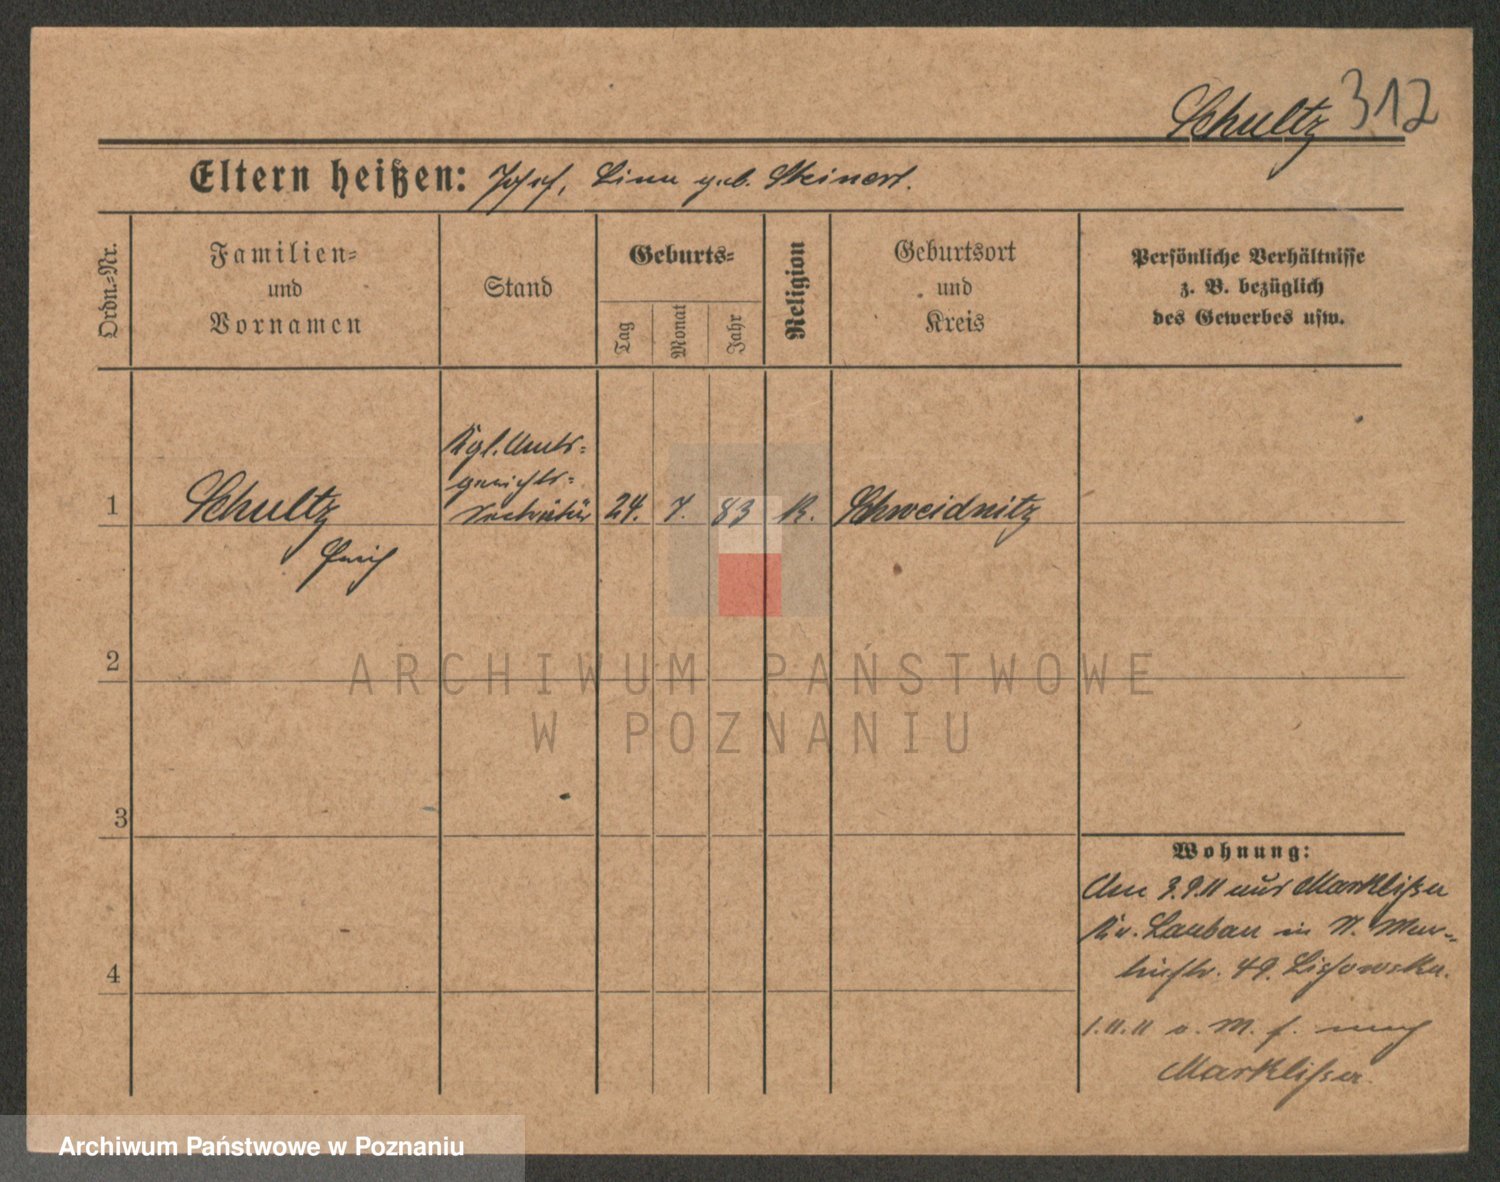 Schultz 312
Eltern heißen: Josef, Lina geb. Steinert.
Ordn.-Nr.
Familien-
und
Vornamen
Stand
Geburts-
Tag
Monat
Jahr
Religion
Geburtsort
und
Kreis
Persönliche Verhältnisse
z. B. bezüglich
des Gewerbes usw.
Kgl. Amts-
gerichts-
1 Schultz Sekretär 24. 7. 83 K. Schweidnitz
2
ARCHIWUM PAŃSTWOWE
W POZNANIU
3
Wohnung:
Am 3.9.11 aus Marklissa
Kr. Lauban in
49.
4
1.11.11 v. M. f. nach
Marklissa.
Archiwum Państwowe w Poznaniu